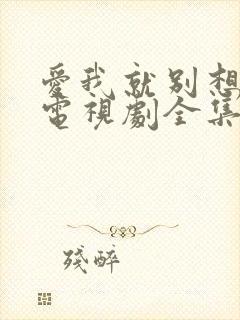 愛我就別想
電視劇全集
殘醉